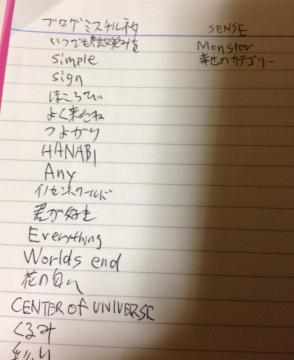 ブログミスチルネタ
いつでも微笑みを
simple
sign
ほころび
よく来たね
つよがり
HANABI
Any
イノセントワールド
君が好き
Everything
Worlds end
花の匂い
CENTER of UNIVERSE
くるみ
SENSE
Monster
幸せのカテゴリー